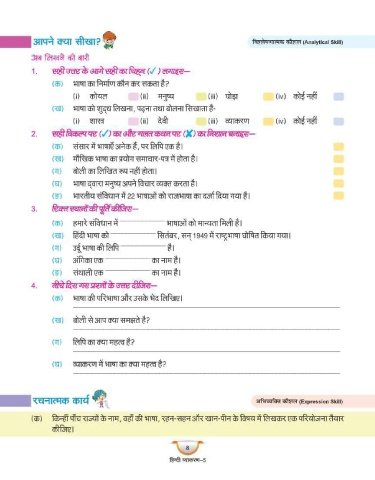 आपने क्या सीखा?
विश्लेषणात्मक कौशल (Analytical Skill)
अब लिखने की बारी
1. सही उत्तर के आगे सही का चिह्न (✓) लगाइए—
(क) भाषा का निर्माण कौन कर सकता है?
(i) कोयल (ii) मनुष्य (iii) घोड़ा (iv) कोई नहीं
(ख) भाषा को शुद्ध लिखना, पढ़ना तथा बोलना सिखाता है-
(i) शास्त्र (ii) देवी (iii) व्याकरण (iv) कोई नहीं
2. सही विकल्प पर (✓) का और गलत कथन पर (✗) का निशान बनाइए—
(क) संसार में भाषाएँ अनेक हैं, पर लिपि एक है।
(ख) मौखिक भाषा का प्रयोग समाचार-पत्र में होता है।
(ग) बोली का लिखित रूप नहीं होता।
(घ) भाषा द्वारा मनुष्य अपने विचार व्यक्त करता है।
(ङ) भारतीय संविधान में 22 भाषाओं को राजभाषा का दर्जा दिया गया है।
3. रिक्त स्थानों की पूर्ति कीजिए—
(क) हमारे संविधान में भाषाओं को मान्यता मिली है।
(ख) हिंदी भाषा को सितंबर, सन् 1949 में राष्ट्रभाषा घोषित किया गया।
(ग) उर्दू भाषा की लिपि है।
(घ) अंगिका एक का नाम है।
(ङ) संथाली एक का नाम है।
4. नीचे दिए गए प्रश्नों के उत्तर दीजिए—
(क) भाषा की परिभाषा और उसके भेद लिखिए।
(ख) बोली से आप क्या समझते हैं?
(ग) लिपि का क्या महत्व है?
(घ) व्याकरण में भाषा का क्या महत्व है?
रचनात्मक कार्य
अभिव्यक्ति कौशल (Expression Skill)
(क) किन्हीं पाँच राज्यों के नाम, वहाँ की भाषा, रहन-सहन और खान-पीन के विषय में लिखकर एक परियोजना तैयार
कीजिए।
8
हिन्दी व्याकरण-5